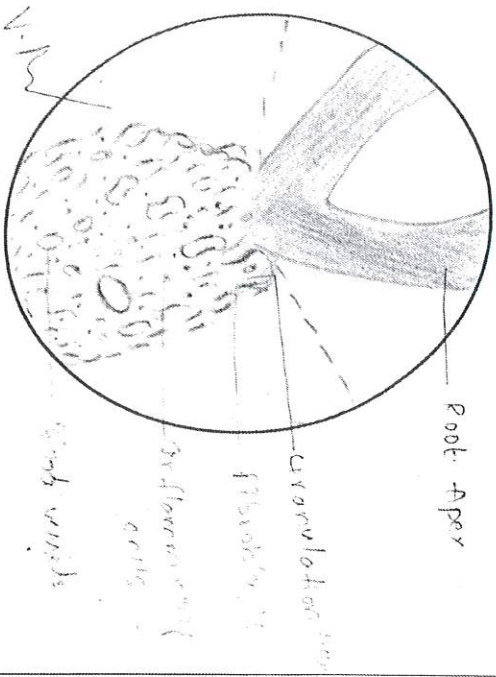 Root Apex
Granulation
Fibroblast
Inflammatory
cells
Blood vessels